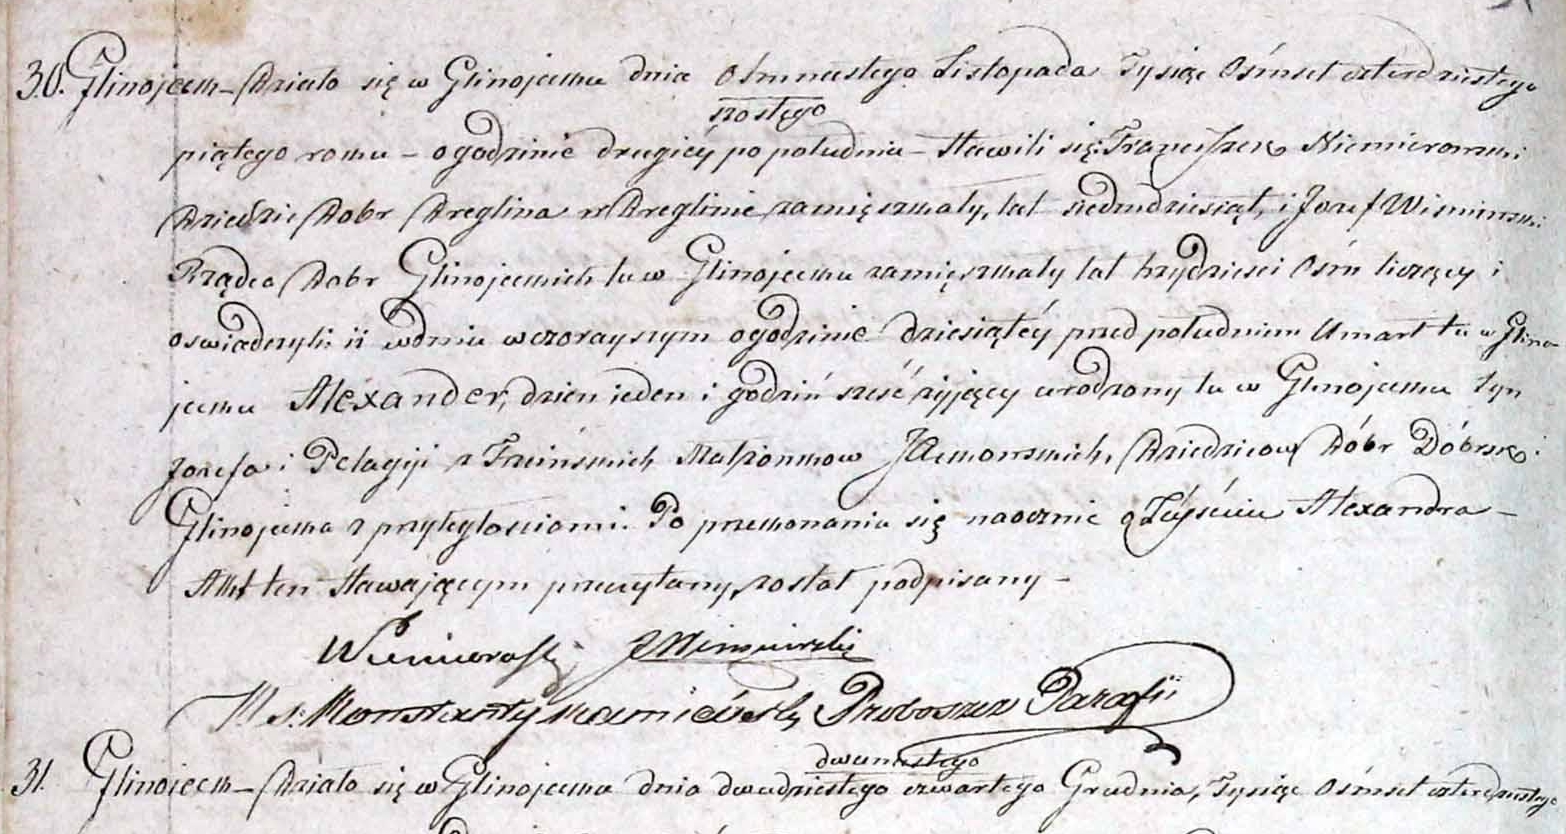 30. Glinojeck – Działo się w Glinojecku dnia Osmnastego Listopada Tysiąc Ośmset czterdziestego
szostego
piątego roku – o godzinie drugiéy po południu – stawili się: Franciszek Niemierowski
Dziedzic Dobr Dreglina w Dreglinie zamięszkały, lat siedmdziesiąt, i Jozef Wisniewski
Rządca Dobr Glinojeckich tu w Glinojecku zamięszkały lat trzydzieści Ośm liczący i
oswiadczyli: iż w dniu wczorayszym o godzinie dziesiątéy przed południem Umarł tu w Glino
jecku Alexander, dzien ieden i godzin sześć żyjący urodzony tu w Glinojecku syn
Jozefa i Pelagiji z Małżonkow Dziedzicow Dóbr Dóbrsk i
Glinojecka z przyległosciami. Po przekonaniu się naocznie o Zejściu Alexandra –
Akt ten stawającym przeczytany, został podpisany –
X s. Konstanty Proboszcz Parafii
dwunastego
31. Glinojeck – Działo się w Glinojecku dnia dwudziestego czwartego Grudnia, Tysiąc Ośmset czterdziestego